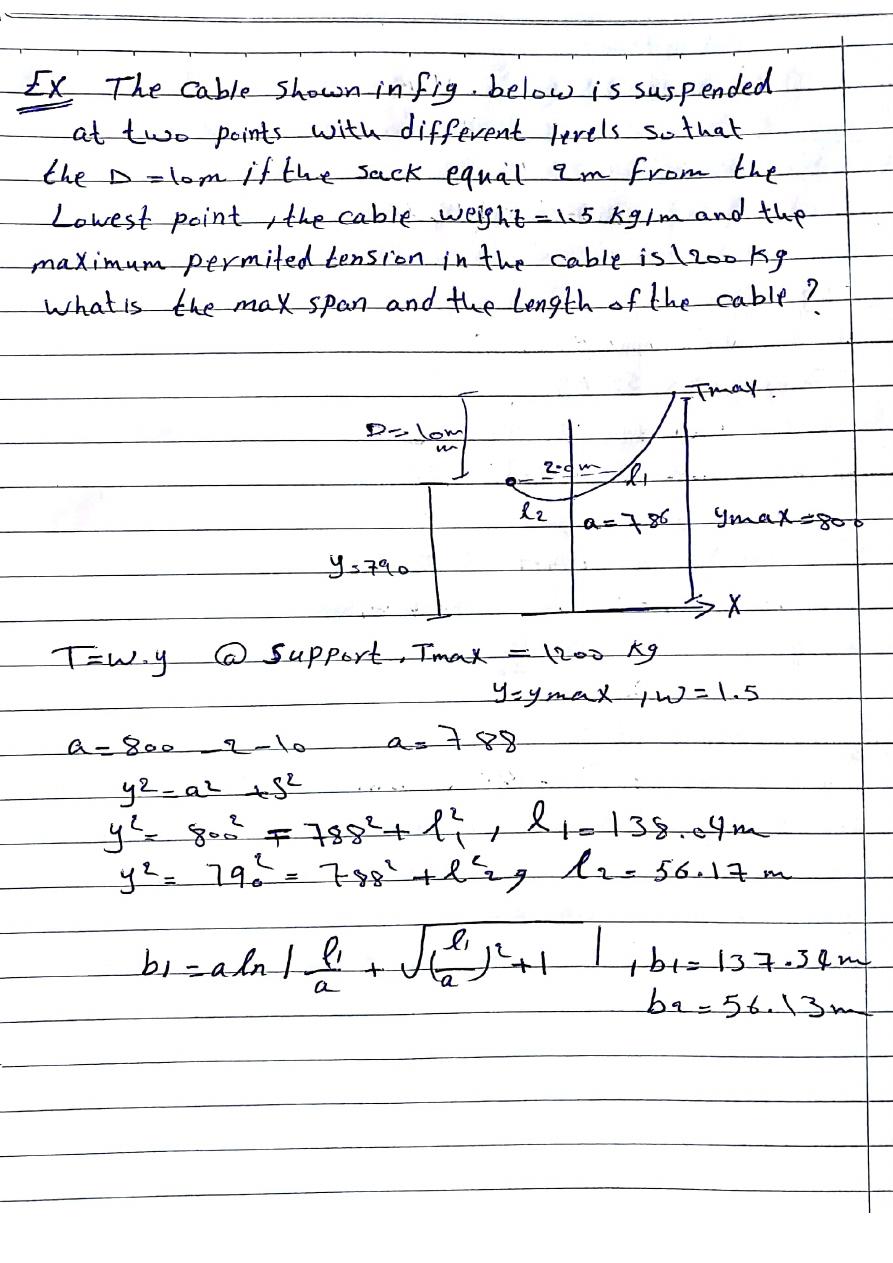 Ex The cable shown in fig. below is suspended
at two points with different levels so that
the D = 10m if the sack equal 2m from the
Lowest point, the cable weight = 1.5 kg/m and the
maximum permited tension in the cable is 1200 kg
what is the max span and the length of the cable?
Tmax.
D = 10m
m
2.0m
l1
l2
a = 786
ymax = 800
y = 790
X
T = w.y @ support, Tmax = 1200 kg
y = ymax, w = 1.5
a = 800 - 2 - 10 a = 788
y² = a² + S²
y² = 800² = 788² + l₁², l₁ = 138.04m
y² = 790² = 788² + l²₂, l₂ = 56.17 m
b₁ = a ln | l₁/a + √(l₁/a)² + 1 |, b₁ = 137.34m
b₂ = 56.13m